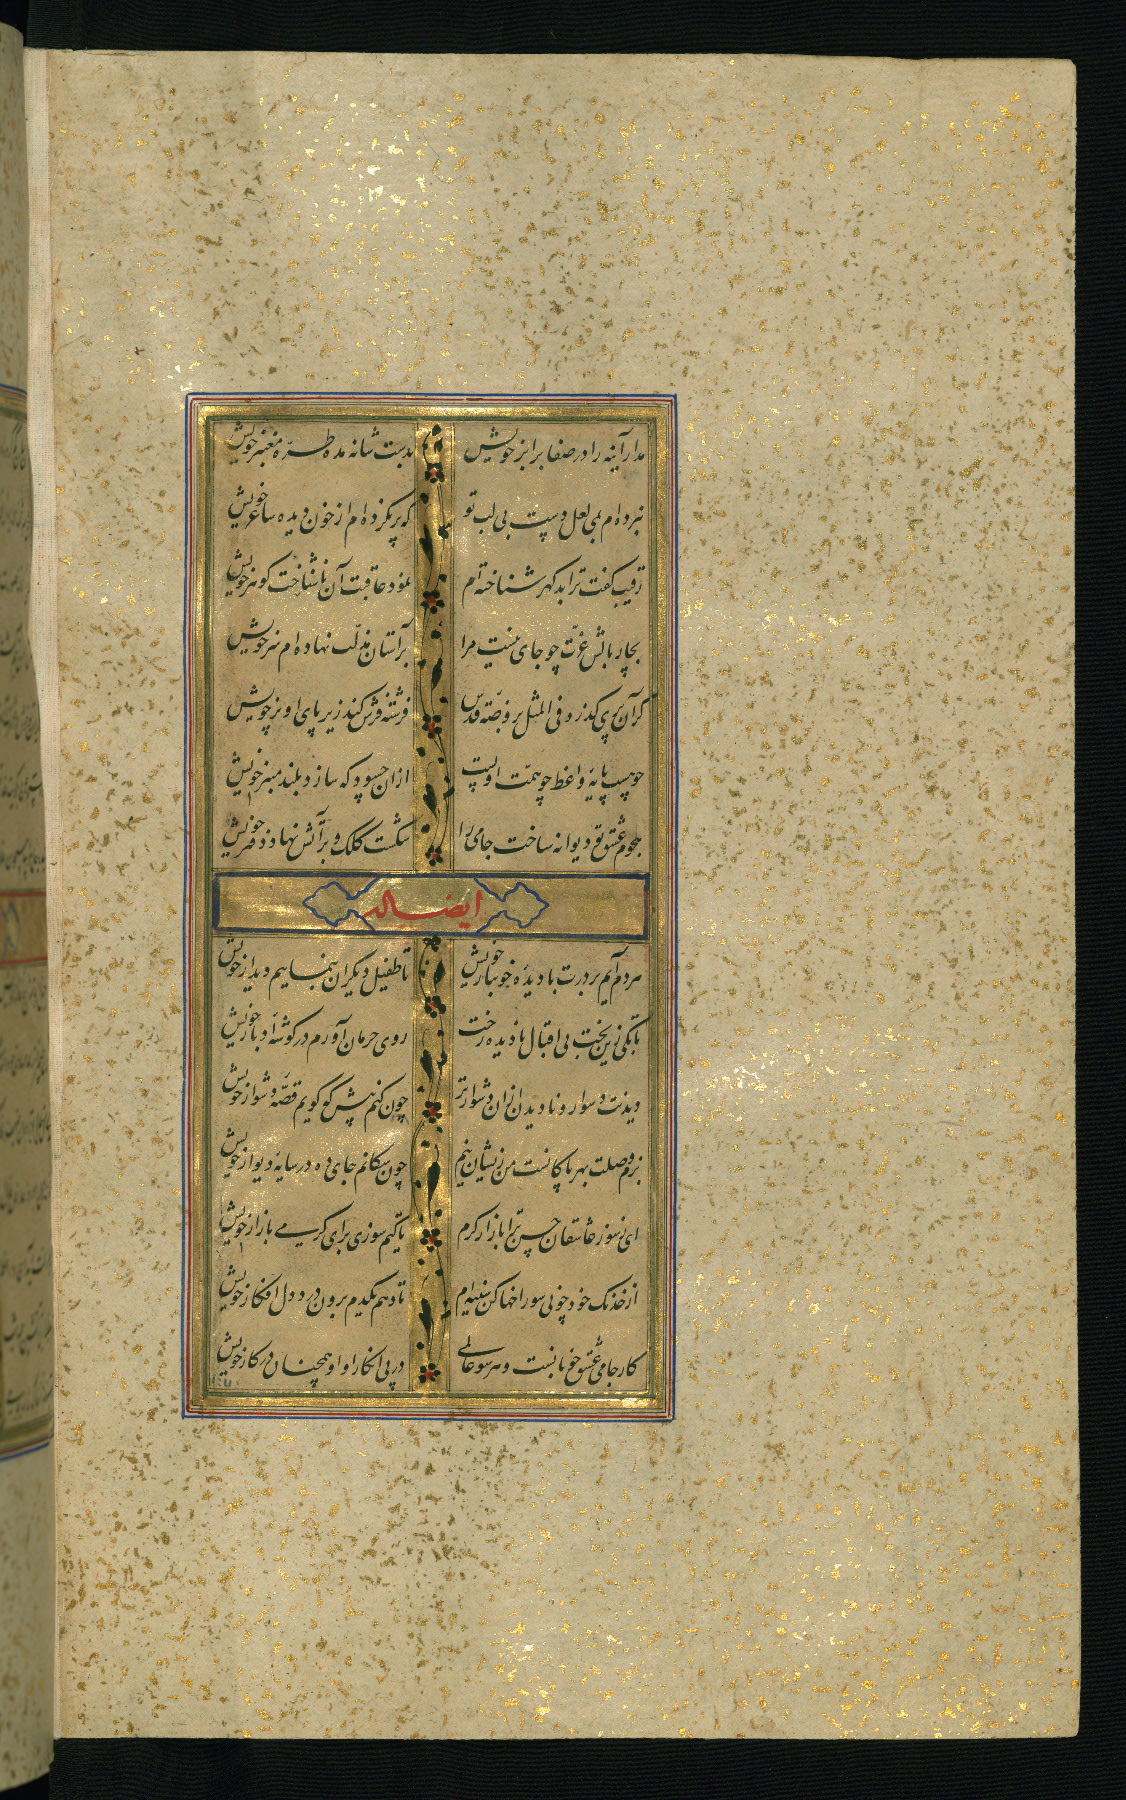 مدار آینه را در صفا برابر خویش بدست شانه مده طرهٔ معنبر خویش
نبرده‌ام می لعل دست بی لب تو که پر نکرده‌ام از خون دیده ساغر خویش
رقیب گفت ترا بد گهر شناخته‌ام نمود عاقبت آن ناشناخت گوهر خویش
بچار بالش عزت چو جای نیست مرا بر آستان مذلت نهاده‌ام سر خویش
گر آن پری گذرد فی المثل بروضهٔ قدس فرشته فرش کند زیر پای او پر خویش
چو پست پایهٔ واعظ چو همت اوست ازان چسود که سازد بلند منبر خویش
هجوم عشق تو دیوانه ساخت جامی را شکست کلک و بر آتش نهاد دفتر خویش
ایضا له
هر دم آیم بر درت با دیدهٔ خونبار خویش تا طفیل دیگران بنماییم دیدار خویش
تا بکی زین بخت بی اقبال نادیده رخت روی حرمان آورم در گوشهٔ ادبار خویش
دیدنت دشوار و نادیدن ازان دشوارتر چون کنم پیش که گویم قصهٔ دشوار خویش
بزم وصلت بهر پاکانست من زیشان نیم چون سگانم جای ده در سایهٔ دیوار خویش
ای ز سوز عاشقان حسن ترا بازار گرم تا کیم سوزی برای گرمی بازار خویش
از خدنک خود چو نی سوراخها کن سینه‌ام تا دهم یکدم برون درد دل افکار خویش
کار جامی عشق خوبانست و هر سو عالمی در پی انکار او او همچنان در کار خویش